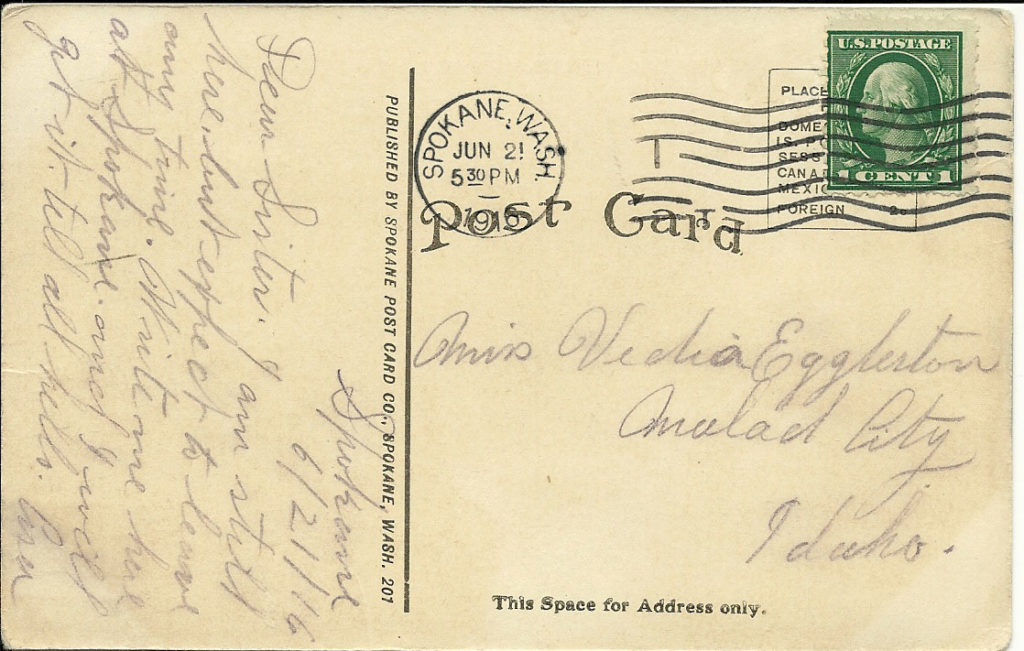 Spokane
6/21/16
Dear Sister. I am still
here. but expect to leave
any time. Write me here
at Spokane. and I will
get it. tell all hello. Asa
PUBLISHED BY SPOKANE POST CARD CO., SPOKANE, WASH. 201
SPOKANE, WASH.
JUN 21
5 30 PM
1916
U.S. POSTAGE
1 CENT 1
PLACE
DOME
IS, PO
SESS
CANA
MEXI
FOREIGN 2c
Post Card
Miss Vedia Eggleston
Malad City
Idaho.
This Space for Address only.